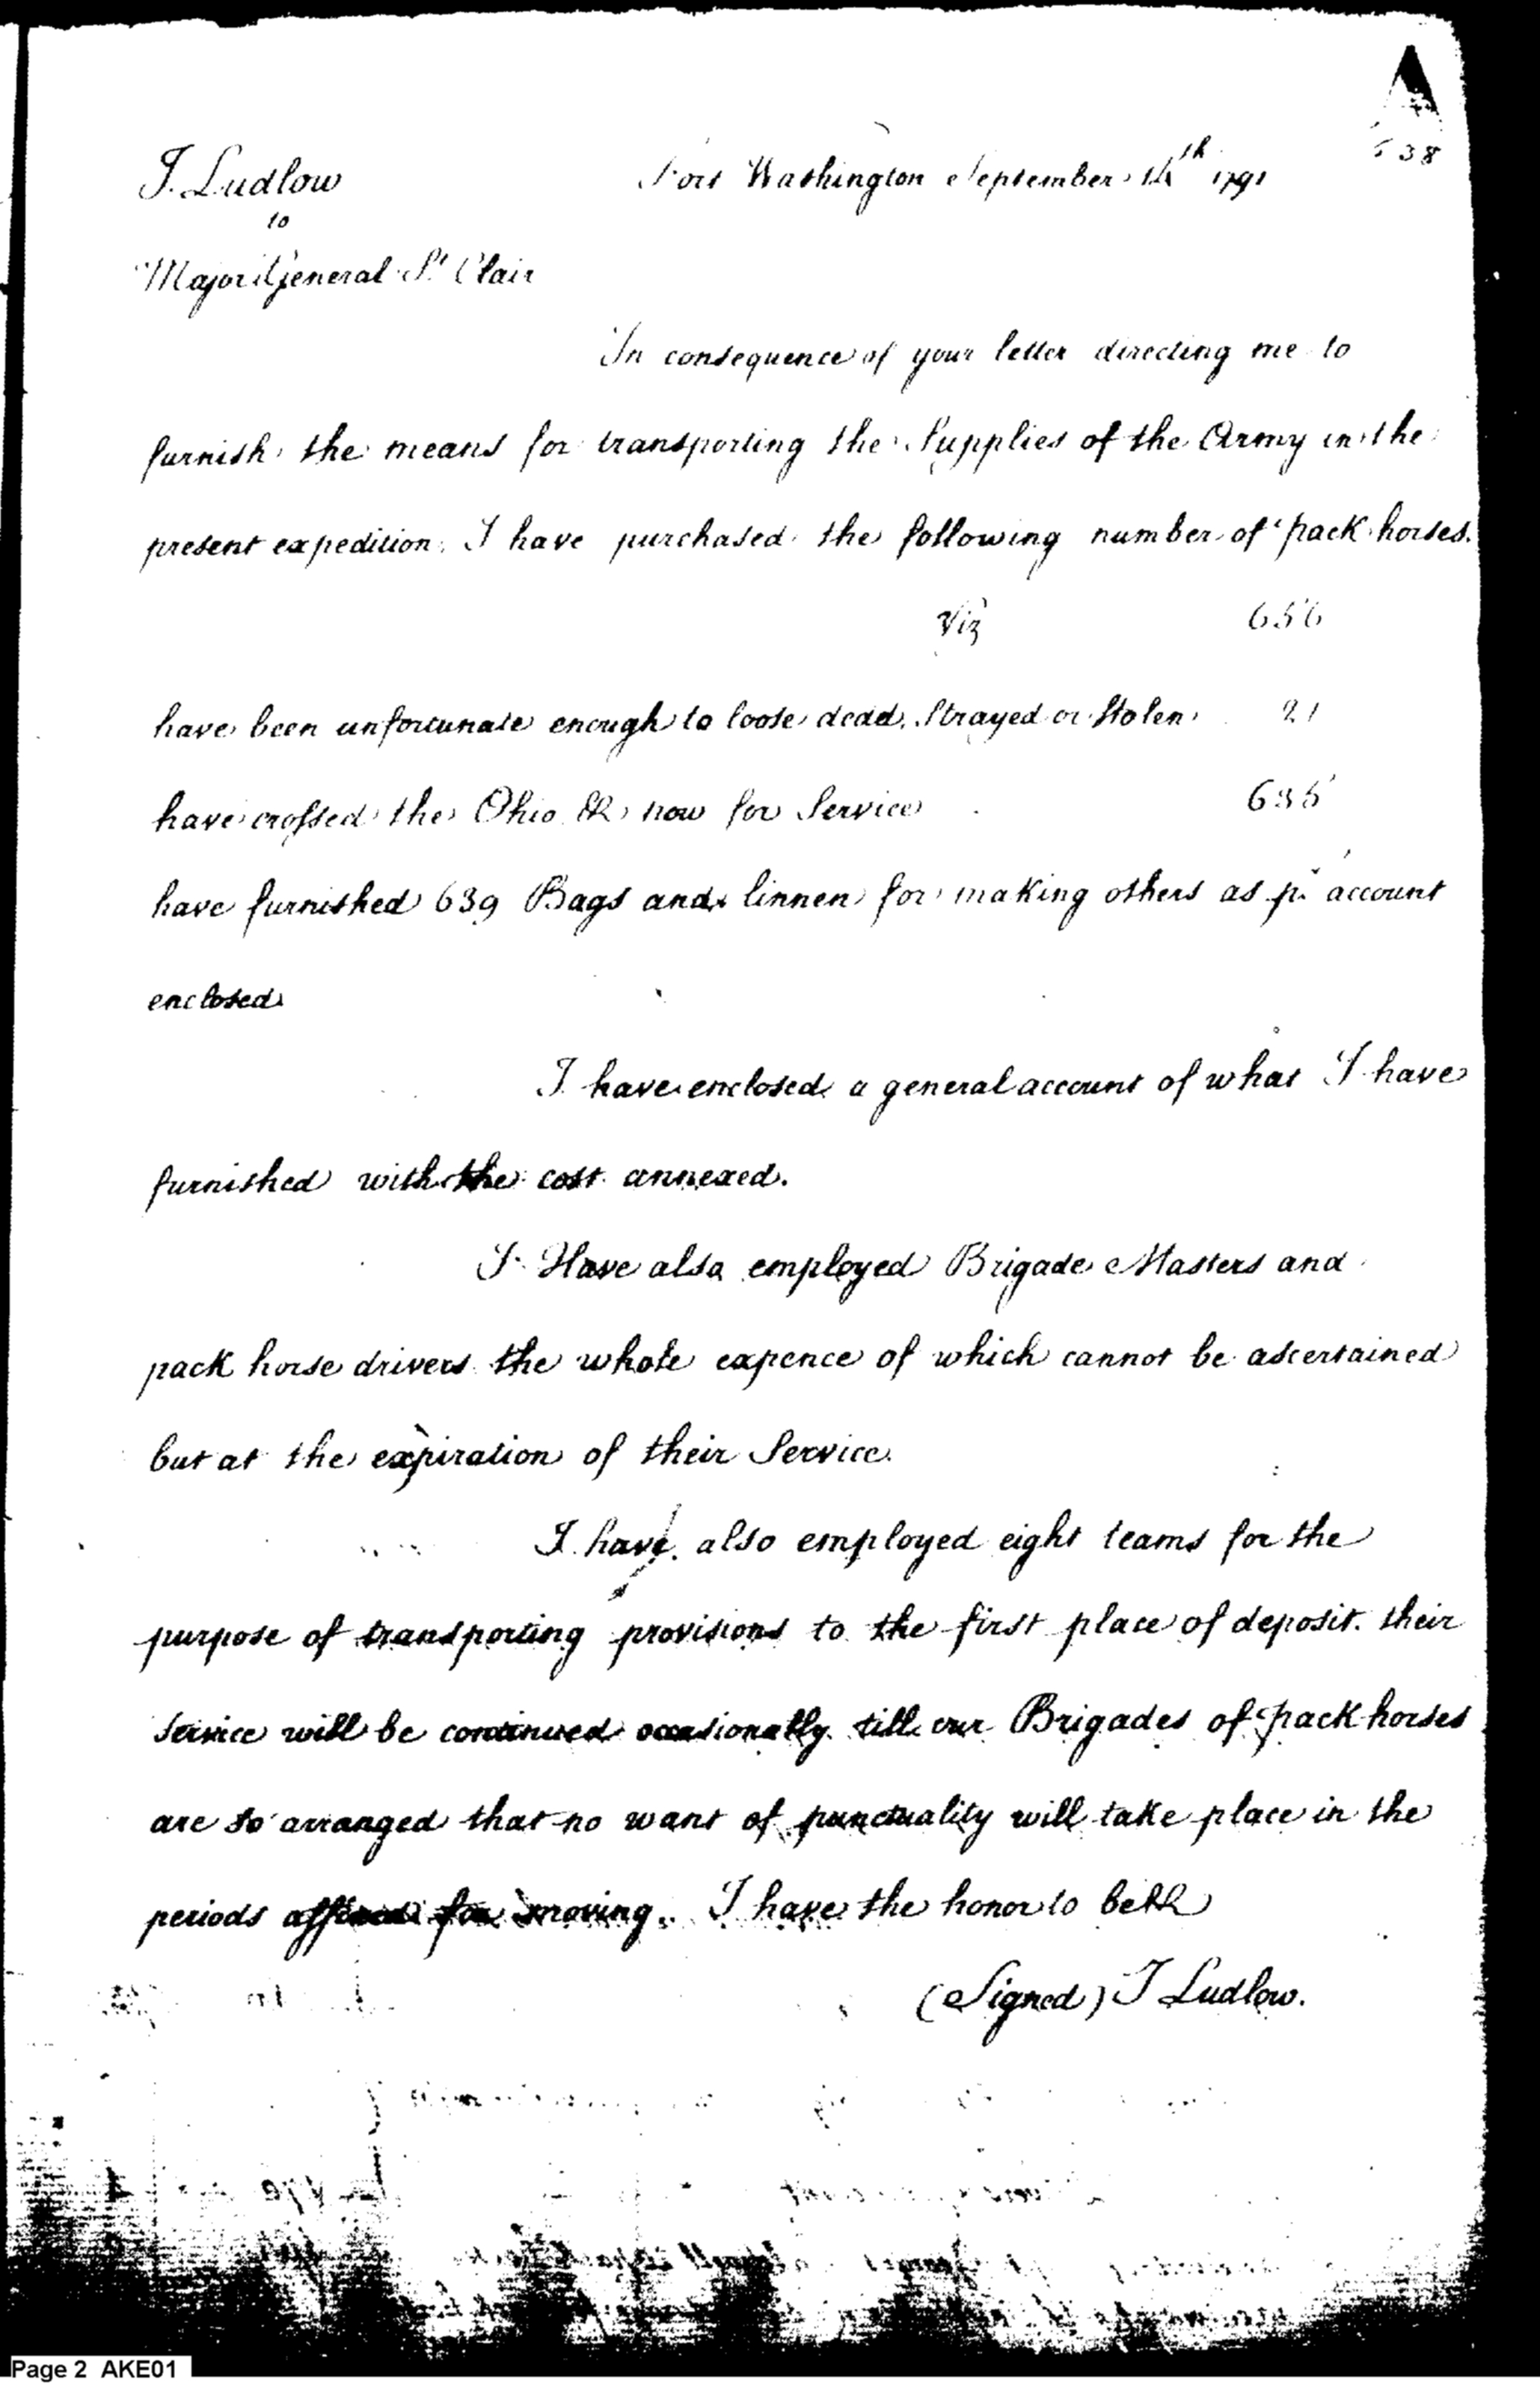 J. Ludlow
to
Major General St Clair
Fort Washington September 14th 1791
In consequence of your letter directing me to
furnish the means for transporting the Supplies of the Army in the
present expedition. I have purchased the following number of pack horses.
Viz 656
have been unfortunate enough to loose dead, Strayed or Stolen 21
have crossed the Ohio & now for Service 635
have furnished 639 Bags and linnen for making others as pr account
enclosed
I have enclosed a general account of what I have
furnished with the cost annexed.
I Have also employed Brigade Masters and
pack horse drivers the whole expence of which cannot be ascertained
but at the expiration of their Service.
I have also employed eight teams for the
purpose of transporting provisions to the first place of deposit. their
Service will be continued occasionally till our Brigades of pack horses
are so arranged that no want of punctuality will take place in the
periods affixed for moving. I have the honor to be &
(Signed) J Ludlow.
Page 2 AKE01